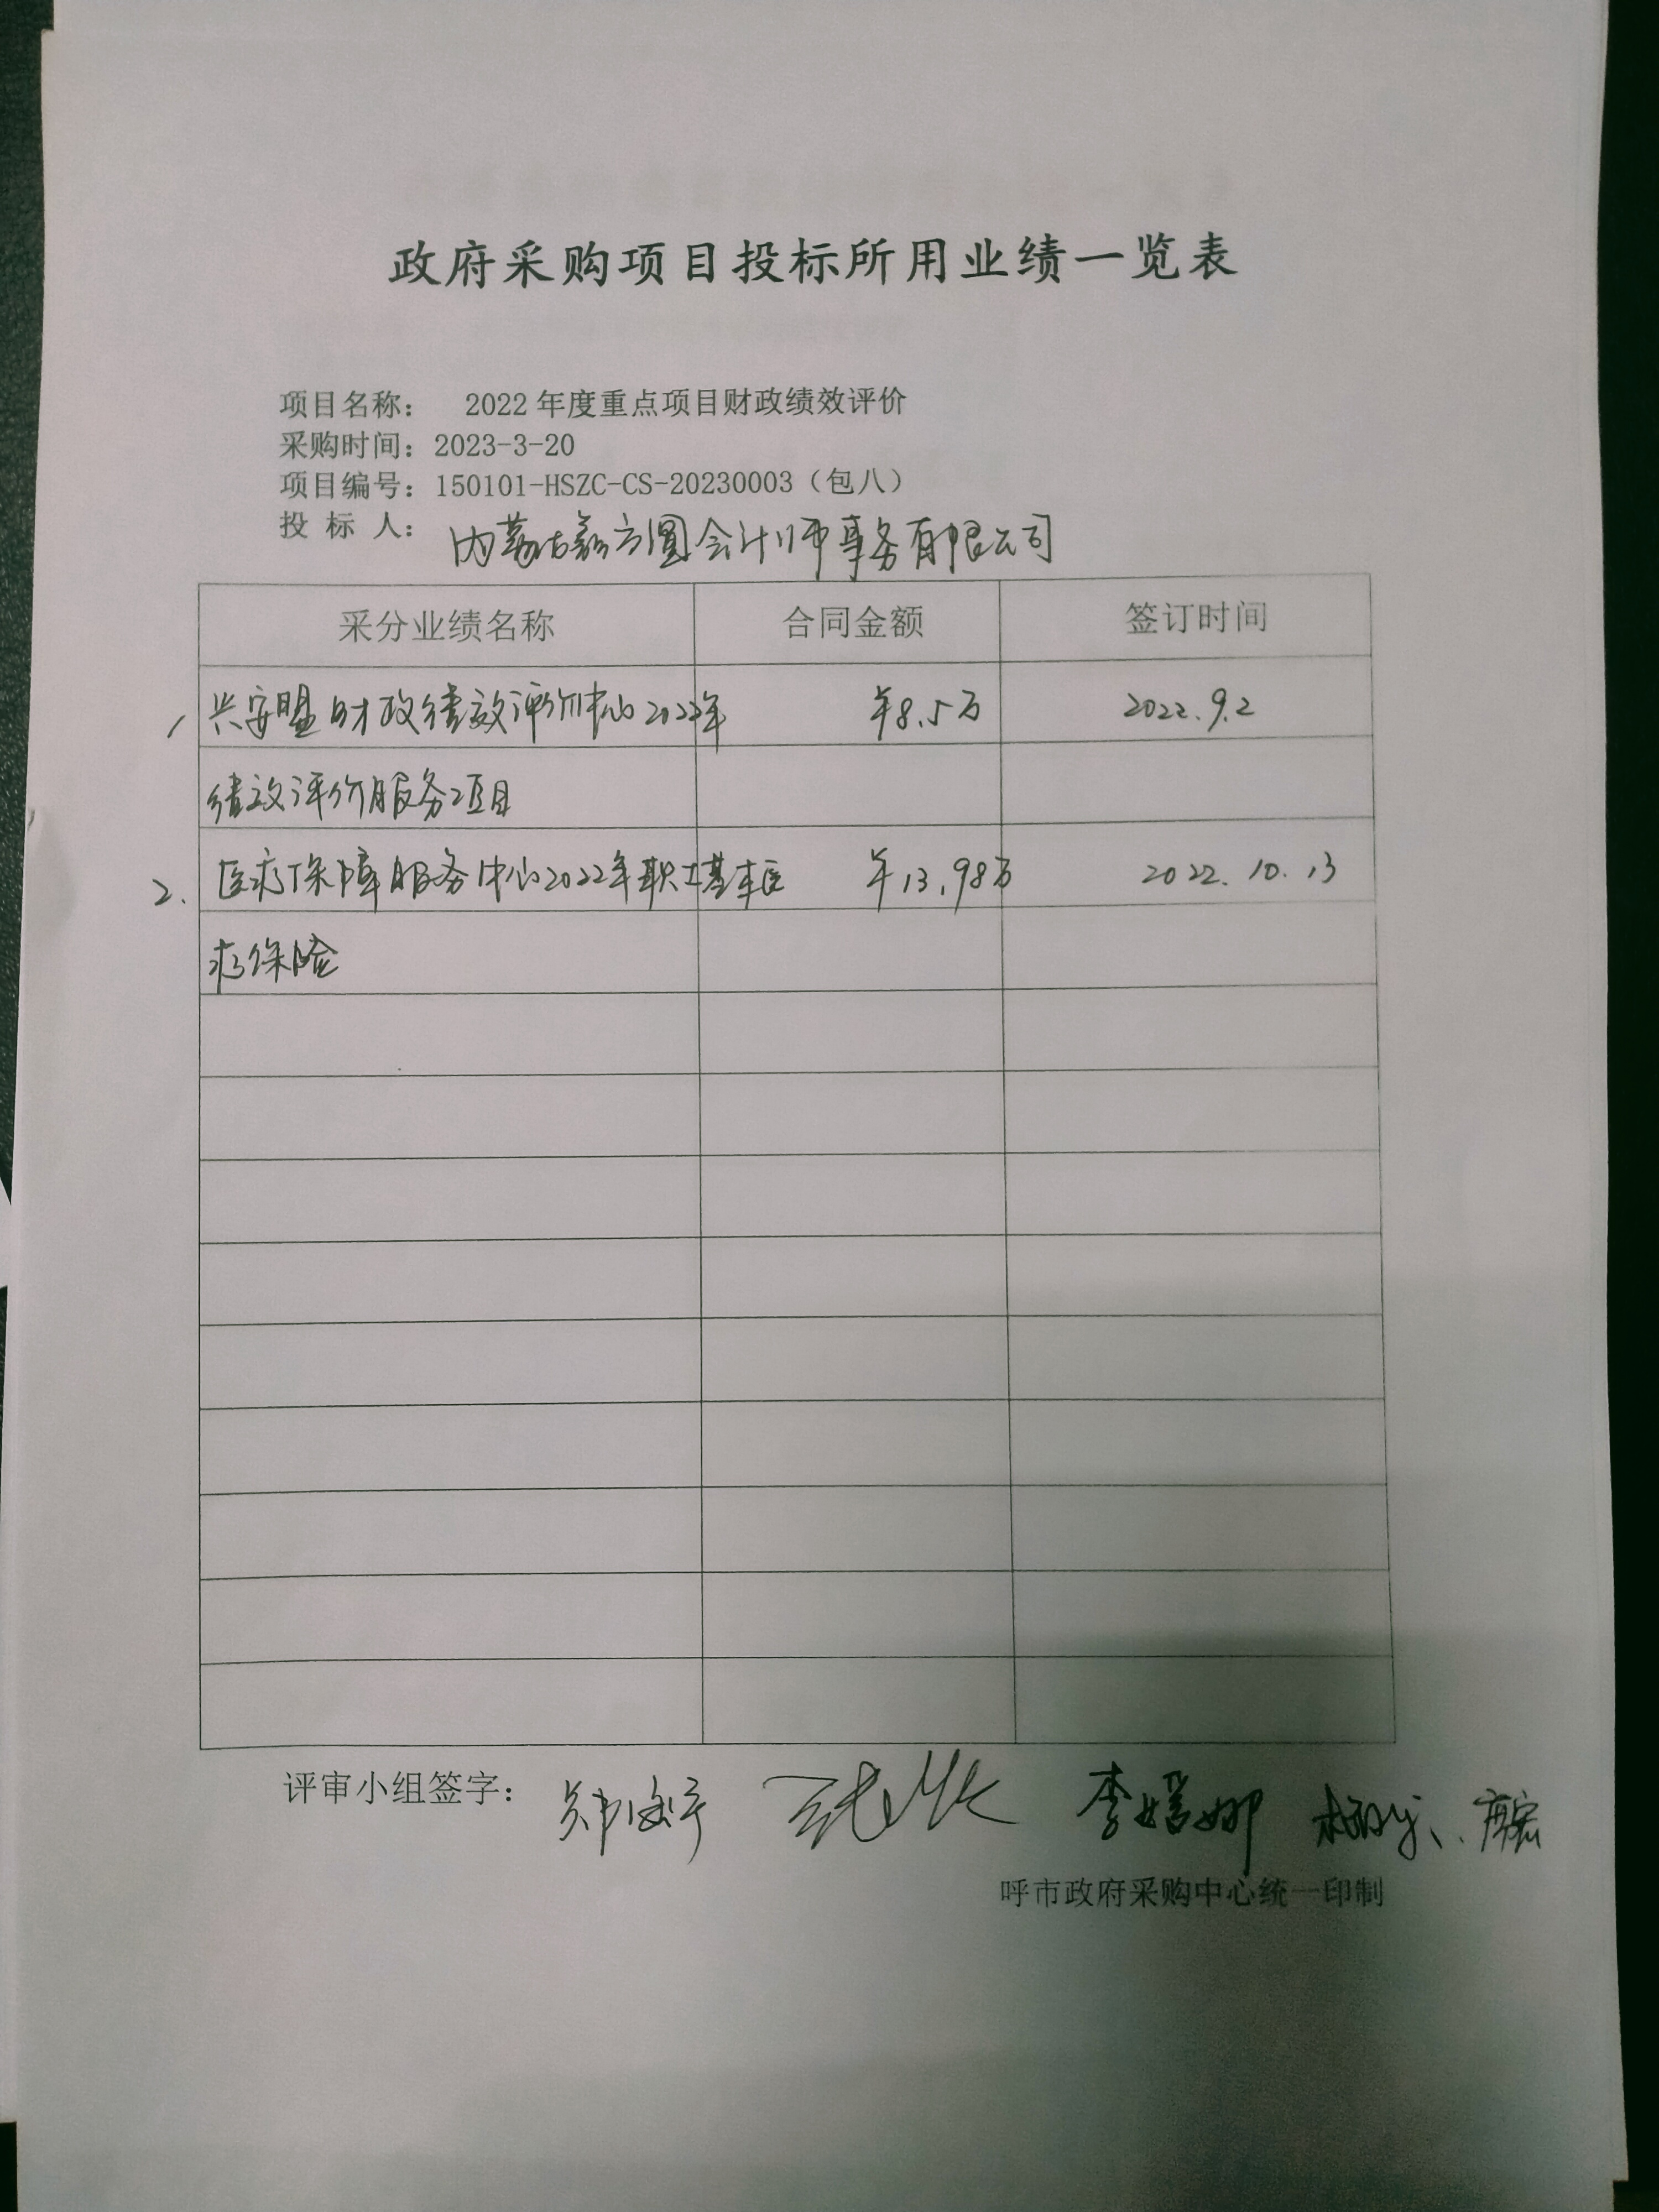 政府采购项目投标所用业绩一览表
项目名称： 2022年度重点项目财政绩效评价
采购时间：2023-3-20
项目编号：150101-HSZC-CS-20230003（包八）
投 标 人： 内蒙古嘉方圆会计师事务有限公司
采分业绩名称 合同金额 签订时间
1、兴安盟财政绩效评价中心2022年 ¥8.5万 2022.9.2
绩效评价服务项目
2. 医疗保障服务中心2022年职工基本医 ¥13.98万 2022.10.13
疗保险
评审小组签字：
呼市政府采购中心统一印制